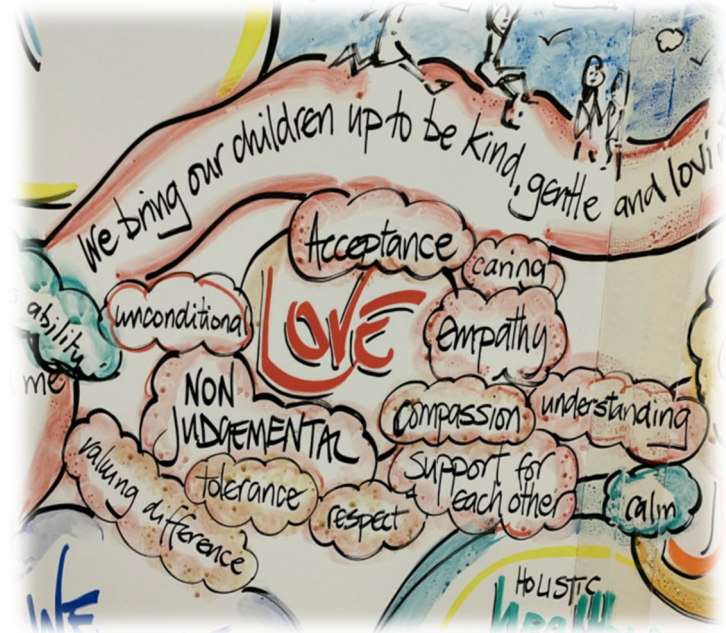 We bring our children up to be kind, gentle and lovi
Acceptance
caring
ability
unconditional
LOVE
empathy
me
NON
JUDGEMENTAL
compassion
understanding
valuing difference
tolerance
respect
support for
each other
calm
HOLISTIC
Health
WE